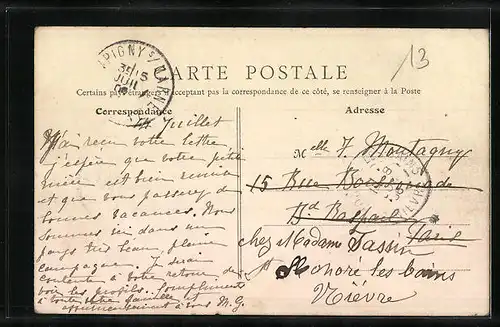 13
CARTE POSTALE
Certains pays étrangers n'acceptant pas la correspondance de ce côté, se renseigner à la Poste
Correspondance
Adresse
14 Juillet
J'ai reçu votre lettre
j'espère que votre petite
mère est bien remise
et que vous passerez de
bonnes vacances. Nous
sommes ici dans un
pays très beau, pleine
campagne. Je serai
contente à votre retour de
voir les profils. Compliments
à toute votre famille et
affectueusement à vous M. G.
Melle J. Montagny
15 Rue Boissonade
Bd Raspail
Paris
chez Madame Tassin
St Honoré les bains
Nièvre